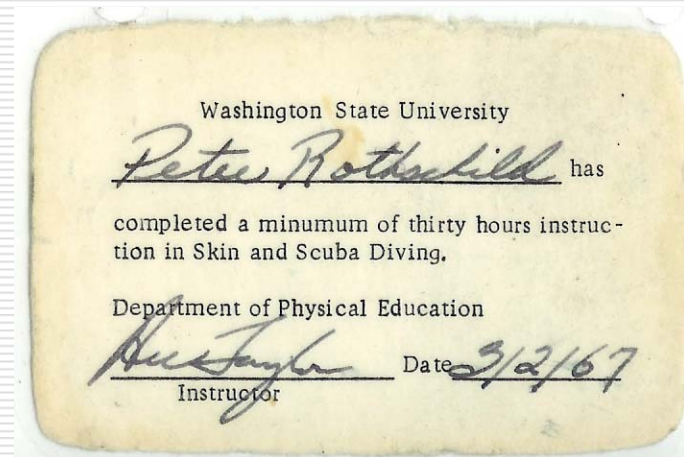 Washington State University
Peter Rothschild has
completed a minumum of thirty hours instruc-
tion in Skin and Scuba Diving.
Department of Physical Education
Taylor Date 3/2/67
Instructor